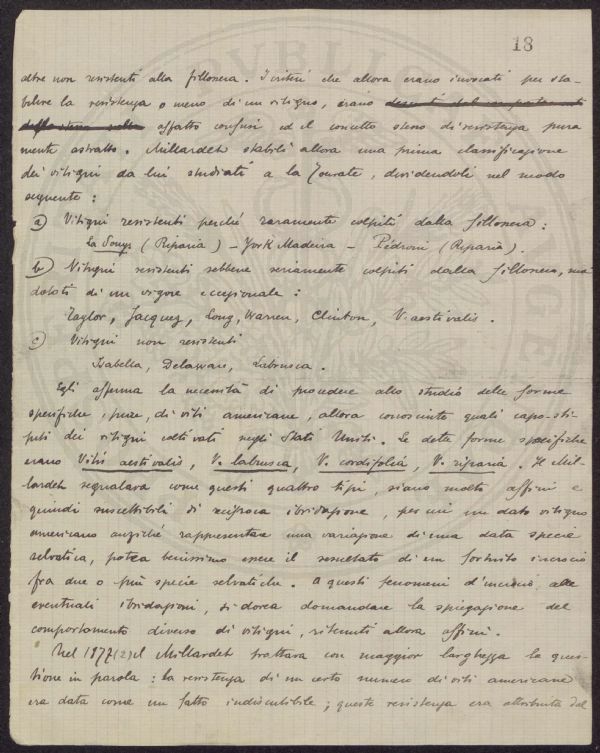 18
altre non resistenti alla fillossera. I criteri che allora erano invocati per sta-
bilire la resistenza o meno di un vitigno, erano
affatto confusi ed il concetto stesso di resistenza pura
mente astratto. Millardet stabilì allora una prima classificazione
dei vitigni da lui studiati a la Tourate, dividendoli nel modo
seguente:
a) Vitigni resistenti perché raramente colpiti dalla fillossera:
La Souys (Riparia) - York Madeira - Pedroni (Riparia).
b) Vitigni resistenti sebbene seriamente colpiti dalla fillossera, ma
dotati di un vigore eccezionale:
Taylor, Jacquez, Long, Warren, Clinton, V. aestivalis.
c) Vitigni non resistenti
Isabella, Delaware, Labrusca.
Egli afferma la necessità di procedere allo studio delle forme
specifiche, pure, di viti americane, allora conosciute quali capo-sti-
piti dei vitigni coltivati negli Stati Uniti. Le dette forme specifiche
erano Vitis aestivalis, V. labrusca, V. cordifolia, V. riparia. Il Mil-
lardet segnalava come questi quattro tipi, siano molto affini e
quindi suscettibili di reciproca ibridazione, per cui un dato vitigno
americano anziché rappresentare una variazione di una data specie
selvatica, potea benissimo essere il resultato di un fortuito incrocio
fra due o più specie selvatiche. A questi fenomeni d'incrocio, alle
eventuali ibridazioni, si dovea domandare la spiegazione del
comportamento diverso di vitigni, ritenuti allora affini.
Nel 1877 (2) il Millardet trattava con maggior larghezza la ques-
tione in parola: la resistenza di un certo numero di viti americane
era data come un fatto indiscutibile; queste resistenza era attribuita dal